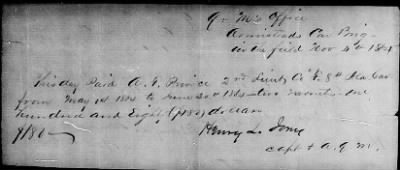 Qr Mrs Office
Armisteads Cav Brig
in the field Nov 4th 1864
This day Paid A. F. 2nd Lieut Co F. 8th Cav
from May 1st 1864 to June 30th 1864 two months one
hundred and Eighty (180) dollars
$180
Henry L. Jones
Capt & A.Q.M.